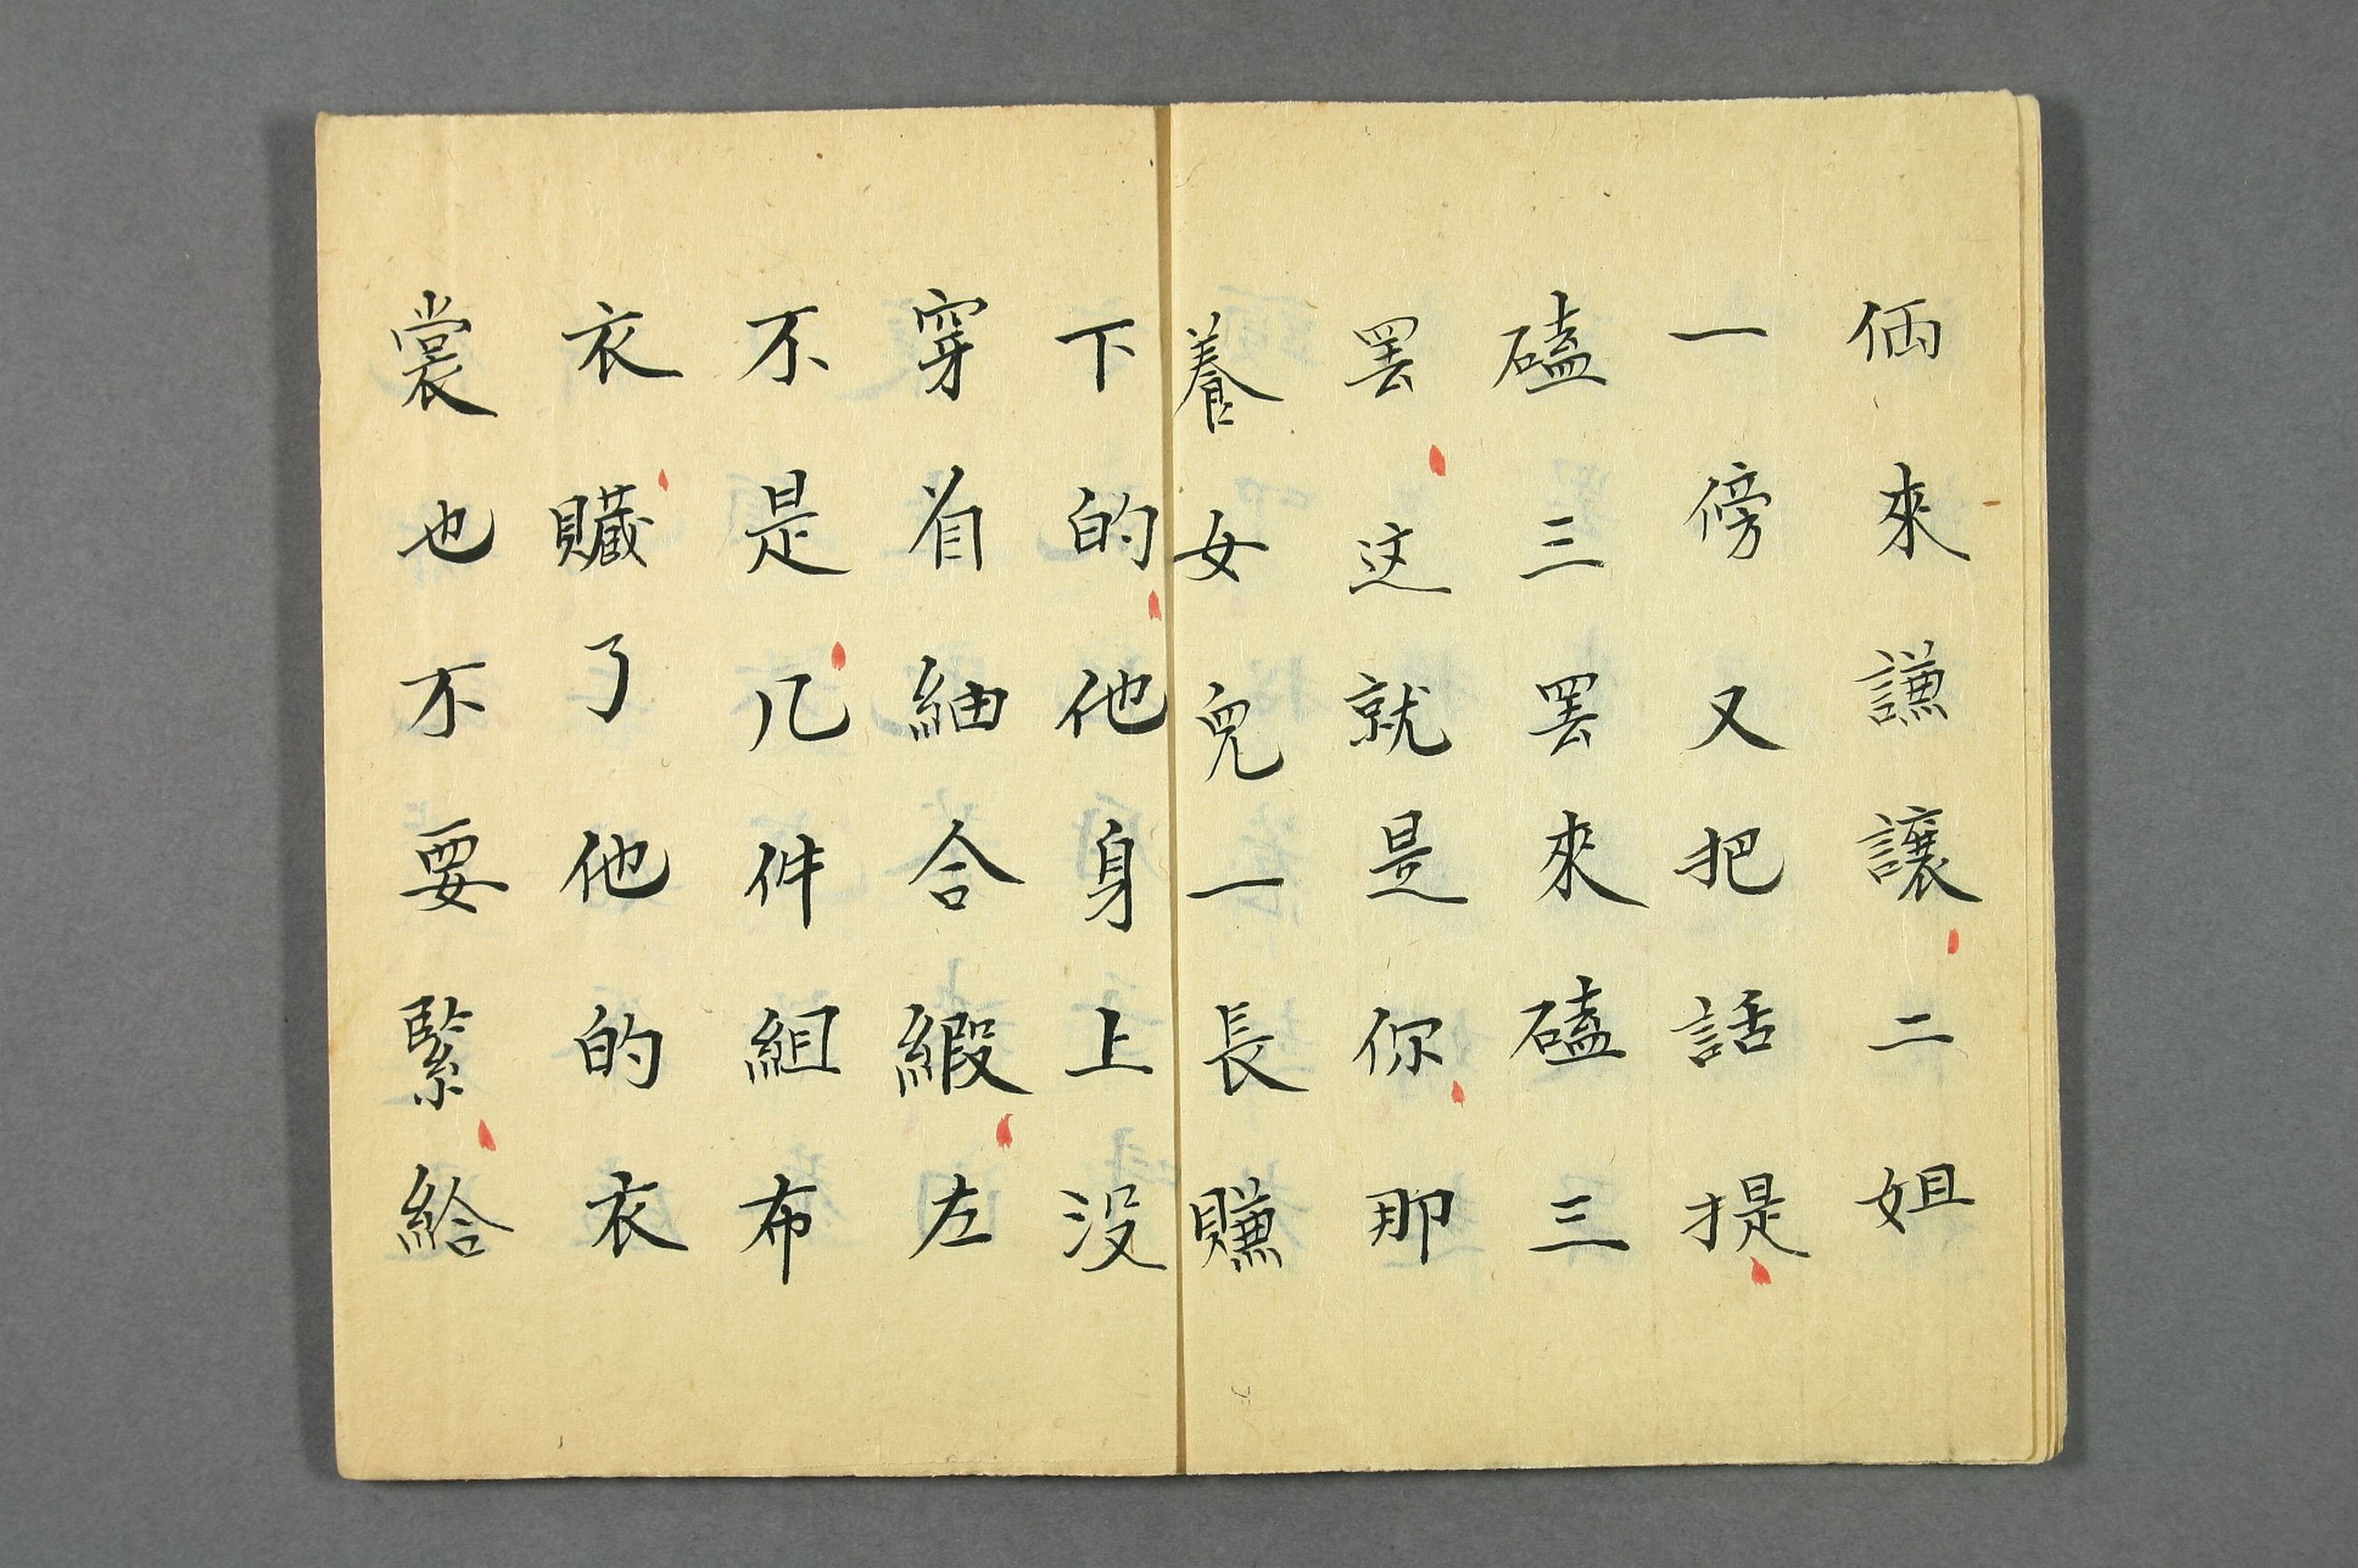 俩來謙讓二姐
一傍又把話提
磕三罢來磕三
罢这就是你那
養女兒一長賺
下的他身上没
穿着紬合緞左
不是几件組布
衣贜了他的衣
裳也不要緊給